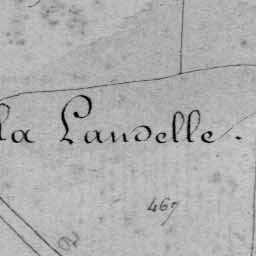 la Landelle.
467
2